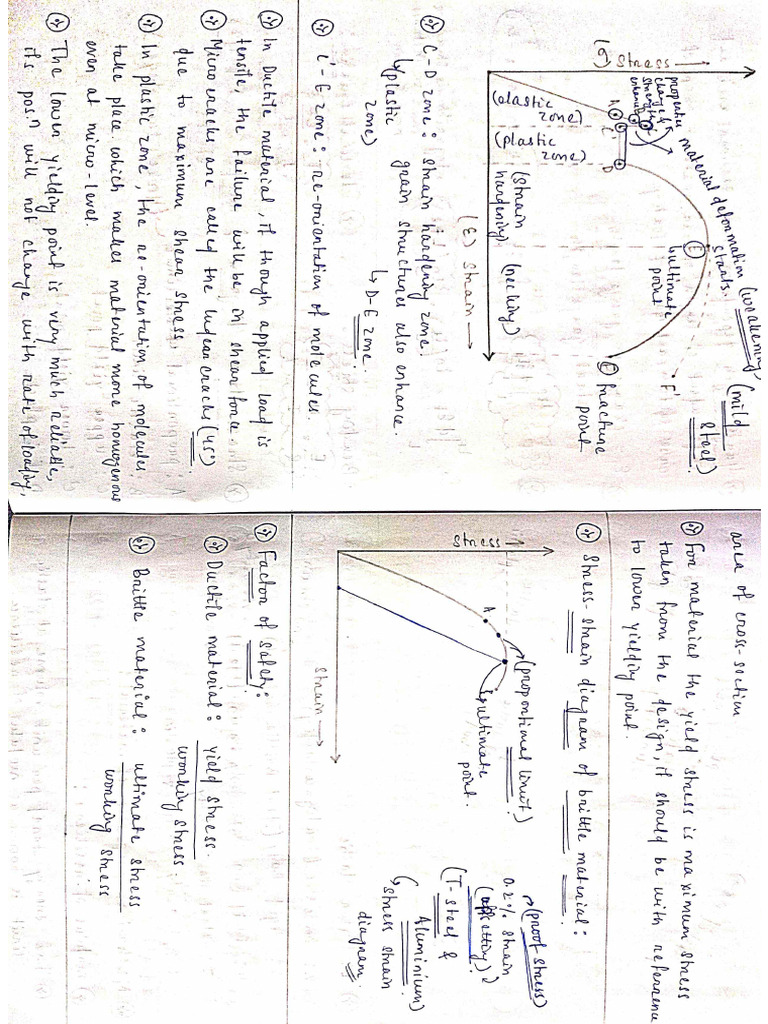 (σ) Stress →
(mild
steel)
material deformation (weakening)
starts.
properties
change &
strength
enhance
A
B
C
C'
D
E
ultimate
point
F
Fracture
point
F'
(elastic
zone)
(plastic
zone)
(strain
hardening)
(necking)
(ε) strain →
C-D zone: strain hardening zone.
(plastic
zone)
grain structures also enhance.
↳ D-E zone.
C'-E zone: re-orientation of molecules
In Ductile material, if though applied load is
tensile, the failure will be in shear force.
Micro cracks are called the luders cracks (45°)
due to maximum shear stress.
In plastic zone, the re-orientation of molecules
take place which makes material more homogenous
even at micro-level.
The lower yielding point is very much reliable,
it's pos.n will not change with rate of loading,
area of cross-section
For material the yield stress is maximum stress
taken from the design, it should be with reference
to lower yielding point.
Stress-strain diagram of brittle material:
Stress →
A
(proportional limit)
ultimate
point.
strain →
(proof stress)
0.2% strain
(offsetting)
(T-steel &
Aluminium)
stress strain
diagram
Factor of safety:
Ductile material: yield stress.
working stress.
Brittle material: ultimate stress
working stress